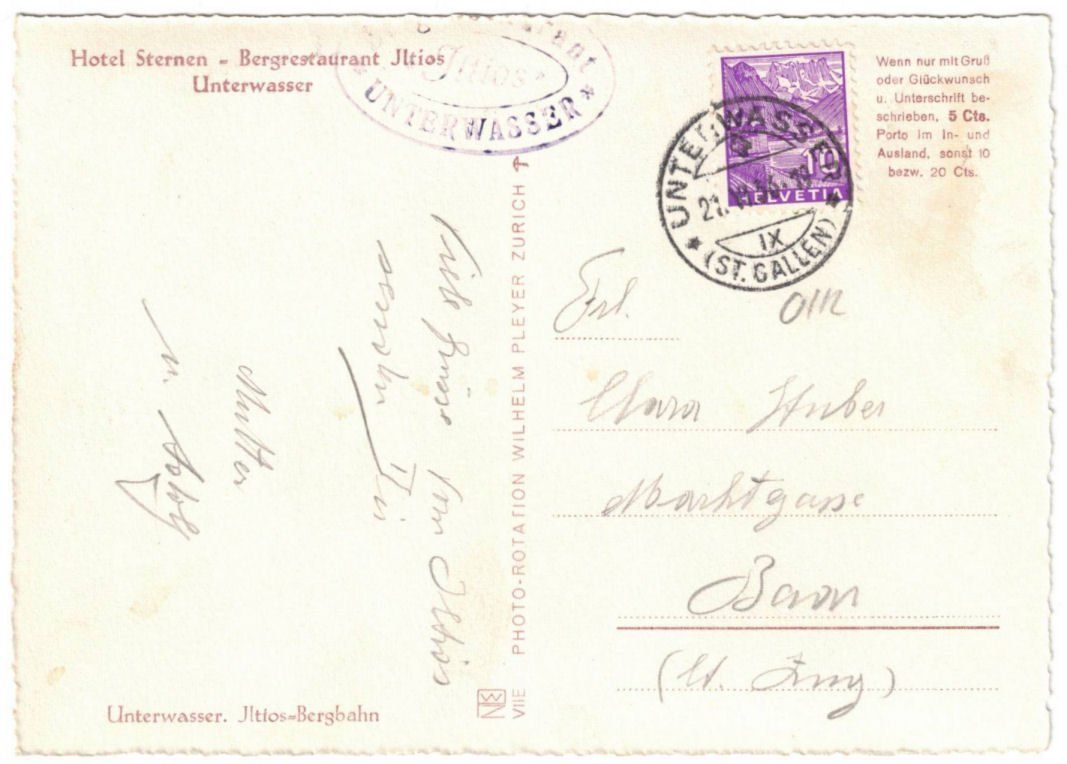 Hotel Sternen - Bergrestaurant Jltios
Unterwasser
Jltios
* UNTERWASSER *
10
HELVETIA
UNTERWASSER
21.
IX
* (ST. GALLEN) *
Wenn nur mit Gruß
oder Glückwunsch
u. Unterschrift be-
schrieben, 5 Cts.
Porto im In- und
Ausland, sonst 10
bezw. 20 Cts.
Viele Grüsse von Iltios
Mutter
u.
PHOTO-ROTATION WILHELM PLEYER ZURICH
VIIE
Frl.
Clara Huber
Marktgasse
Baar
(Ct. Zug)
Unterwasser. Jltios=Bergbahn